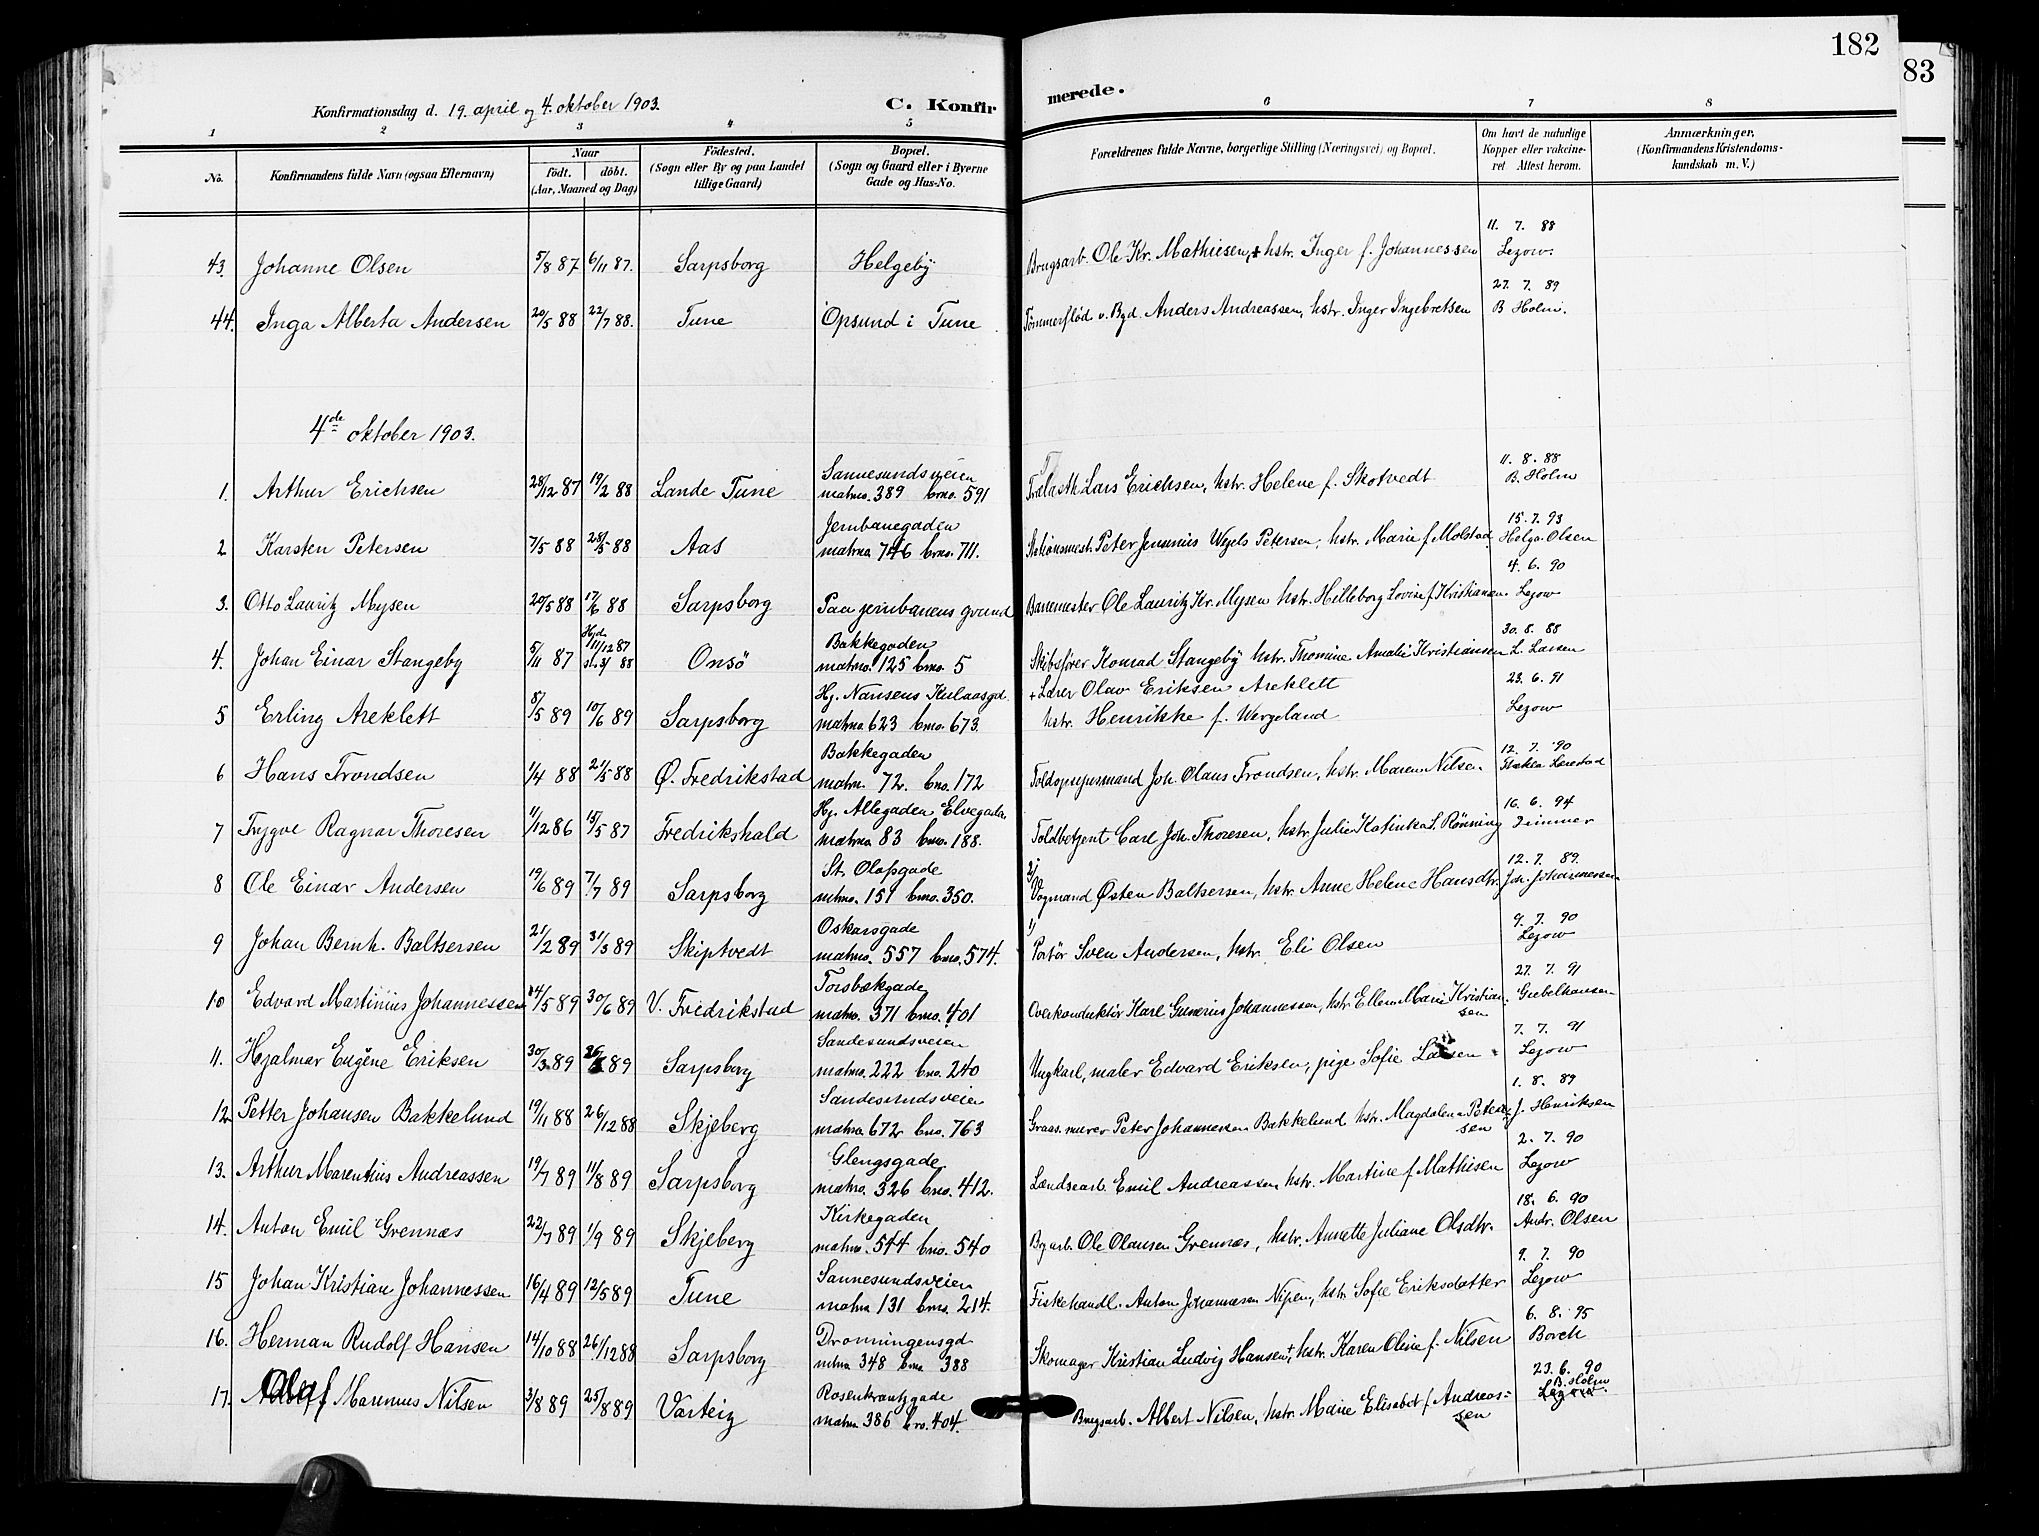 182
83
Konfirmationsdag d. 19. april og 4. oktober 1903.
C. Konfirmerede.
1 2 3 4 5 6 7 8
No.
Konfirmandens fulde Navn (ogsaa Efternavn)
Naar
født. døbt.
(Aar, Maaned og Dag)
Fødested.
(Sogn eller By og paa Landet
tillige Gaard)
Bopæl.
(Sogn og Gaard eller i Byerne
Gade og Hus-No.
Forældrenes fulde Navne, borgerlige Stilling (Næringsvei) og Bopæl.
Om havt de naturlige
Kopper eller vakcine-
ret Attest herom.
Anmærkninger,
(Konfirmandens Kristendoms-
kundskab m. V.)
43. Johanne Olsen 5/8 87 6/11 87. Sarpsborg Helgeby Brugsarb. Ole Kr. Mathiesen, hstr. Inger f. Johannessen 11. 7. 88 Lezow.
44. Inga Alberta Andersen 20/5 88 22/7 88. Tune Opsund i Tune Tømmerflød v. Bgd. Anders Andreassen, hstr. Inger Ingebretsen 27. 7. 89 B Holm.
4de oktober 1903.
1. Arthur Erichsen 28/12 87 19/2 88 Lande Tune Sannesundsveien matrno. 389 brno. 591 Trælasth. Lars Erichsen, hstr. Helene f. Skotvedt 11. 8. 88 B. Holm
2 Karsten Petersen 7/5 88 28/5 88 Aas Jernbanegaden matrno. 746 brno. 711. Stationsmest. Peter Jensenius Wegels Petersen, hstr. Marie f. Molstad 15. 7. 93 Helga Olsen
3. Otto Lauritz Mysen 20/5 88 17/6 88 Sarpsborg Paa jernbanens grund Banemester Ole Lauritz Kr. Mysen hstr. Hilleborg Lovise f. Kristiansen. 4. 6. 90 Lezow
4. Johan Einar Stangeby 5/11 87 Hjd. 11/12 87 Onsø Bakkegaden matrno. 125 brno. 5 Skibsfører Konrad Stangeby hstr. Thomine Amalie Kristiansen 30. 8. 88 L. Larsen
5 Erling Areklett 8/5 89 10/6 89 Sarpsborg Hj. Nansens Kulaasgd. matrno. 623 brno. 673. + Lærer Olav Eriksen Areklett hstr. Henrikke f. Wergeland 23. 6. 91 Lezow
6 Hans Trondsen 1/4 88 21/5 88 Ø. Fredrikstad Bakkegaden matrn. 72. brno. 172 Toldopsynsmand Joh. Olaus Trondsen, hstr. Maren Nilsen 12. 7. 90
7 Trygve Ragnar Thoresen 11/12 86 15/5 87 Fredrikshald Hj. Allegaden Elvegaden matrno. 83 brno. 188. Toldbetjent Carl Joh. Thoresen, hstr. Julie Katinka L. Rønning 16. 6. 94 Zimmer
8 Ole Einar Andersen 19/6 89 7/7 89 Sarpsborg St. Olafsgade mtrno. 151 brno. 350. 2/ Vogmand Østen Baltsersen, hstr. Anne Helene Hansdtr. 12. 7. 89. Joh. Johannessen
9 Johan Bernh. Baltsersen 21/2 89 31/3 89 Skiptvedt Oskarsgade matrno. 557 brno. 574. 1/ Portør Sven Andersen, hstr. Eli Olsen 9. 7. 90 Lezow
10 Edvard Martinius Johannessen 24/5 89 30/6 89 V. Fredrikstad Torsbækgade matrno. 371 brno. 401 Overkonduktør Karl Gunerius Johannessen, hstr. Ellen Marie Kristiansen 27. 7. 91 Giebelhausen
11. Hjalmar Eugène Eriksen 30/3 89 89 Sarpsborg Sandesundsveien matrno. 222 brno. 240 Ungkarl, maler Edvard Eriksen, pige Sofie Larsen 7. 7. 91 Lezow
12 Petter Johansen Bakkelund 19/11 88 26/12 88 Skjeberg Sandesundsveien matrno. 672 brno. 763 Graas. murer Peter Johannessen Bakkelund hstr. Magdalene Petersen 1. 8. 89 J. Henriksen
13. Arthur Marentius Andreassen 19/7 89 11/8 89 Sarpsborg Glengsgade matrno. 326 brno. 412. Landsearb. Emil Andreassen hstr. Martine f. Mathisen 2. 7. 90 Lezow
14. Anton Emil Grennæs 22/7 89 1/9 89 Skjeberg Kirkegaden matrno. 544 brno. 540 Bryarb. Ole Olausen Grennæs, hstr. Annette Juliane Olsdtr. 18. 6. 90 Andr. Olsen
15 Johan Kristian Johannessen 16/4 89 12/5 89 Tune Sannesundsveien matrno 131 brno. 214. Fiskehandl. Anton Johannesen Nipen, hstr. Sofie Eriksdatter 9. 7. 90 Lezow
16. Herman Rudolf Hansen 14/10 88 26/12 88 Sarpsborg Dronningensgd mtrno 348 brno 388 Skomager Kristian Ludvig Hansen +, hstr. Karen Oline f. Nilsen 6. 8. 95 Borch
17. Olaf Marenus Nilsen 3/8 89 25/8 89 Varteig Rosenkrantzgade matrno 386 brno. 404. Brugsarb. Albert Nilsen, hstr. Marie Elisabet f. Andreassen 23. 6. 90 B. Holm Lezow.